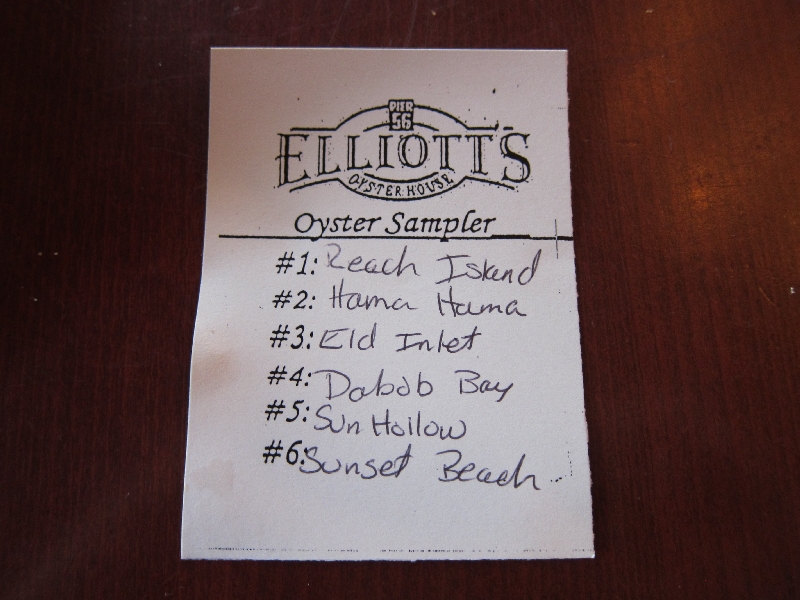 PIER
56
ELLIOTT'S
OYSTER HOUSE
Oyster Sampler
#1: Reach Island
#2: Hama Hama
#3: Eld Inlet
#4: Dabob Bay
#5: Sun Hollow
#6: Sunset Beach